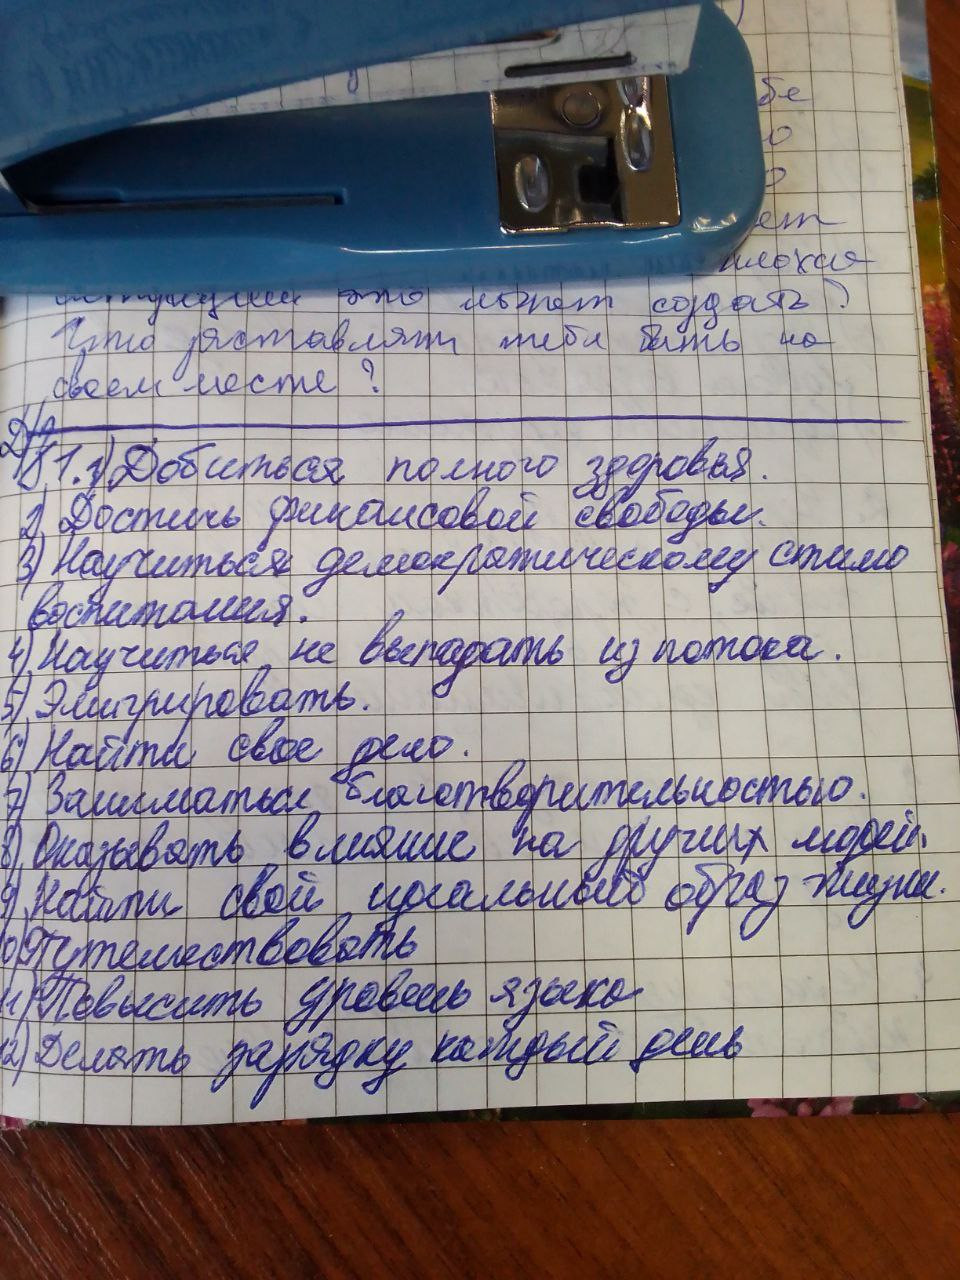 бе
о
о
ет
плохая
ситуации это может создать?
Что заставляет тебя быть на
своем месте?
Д/з
№1. 1) Добиться полного здоровья.
2) Достичь финансовой свободы.
3) Научиться демократическому стилю
воспитания.
4) Научиться не выпадать из потока.
5) Эмигрировать.
6) Найти свое дело.
7) Заниматься благотворительностью.
8) Оказывать влияние на других людей.
9) Найти свой идеальный образ жизни.
10) Путешествовать
11) Повысить уровень языка
12) Делать зарядку каждый день